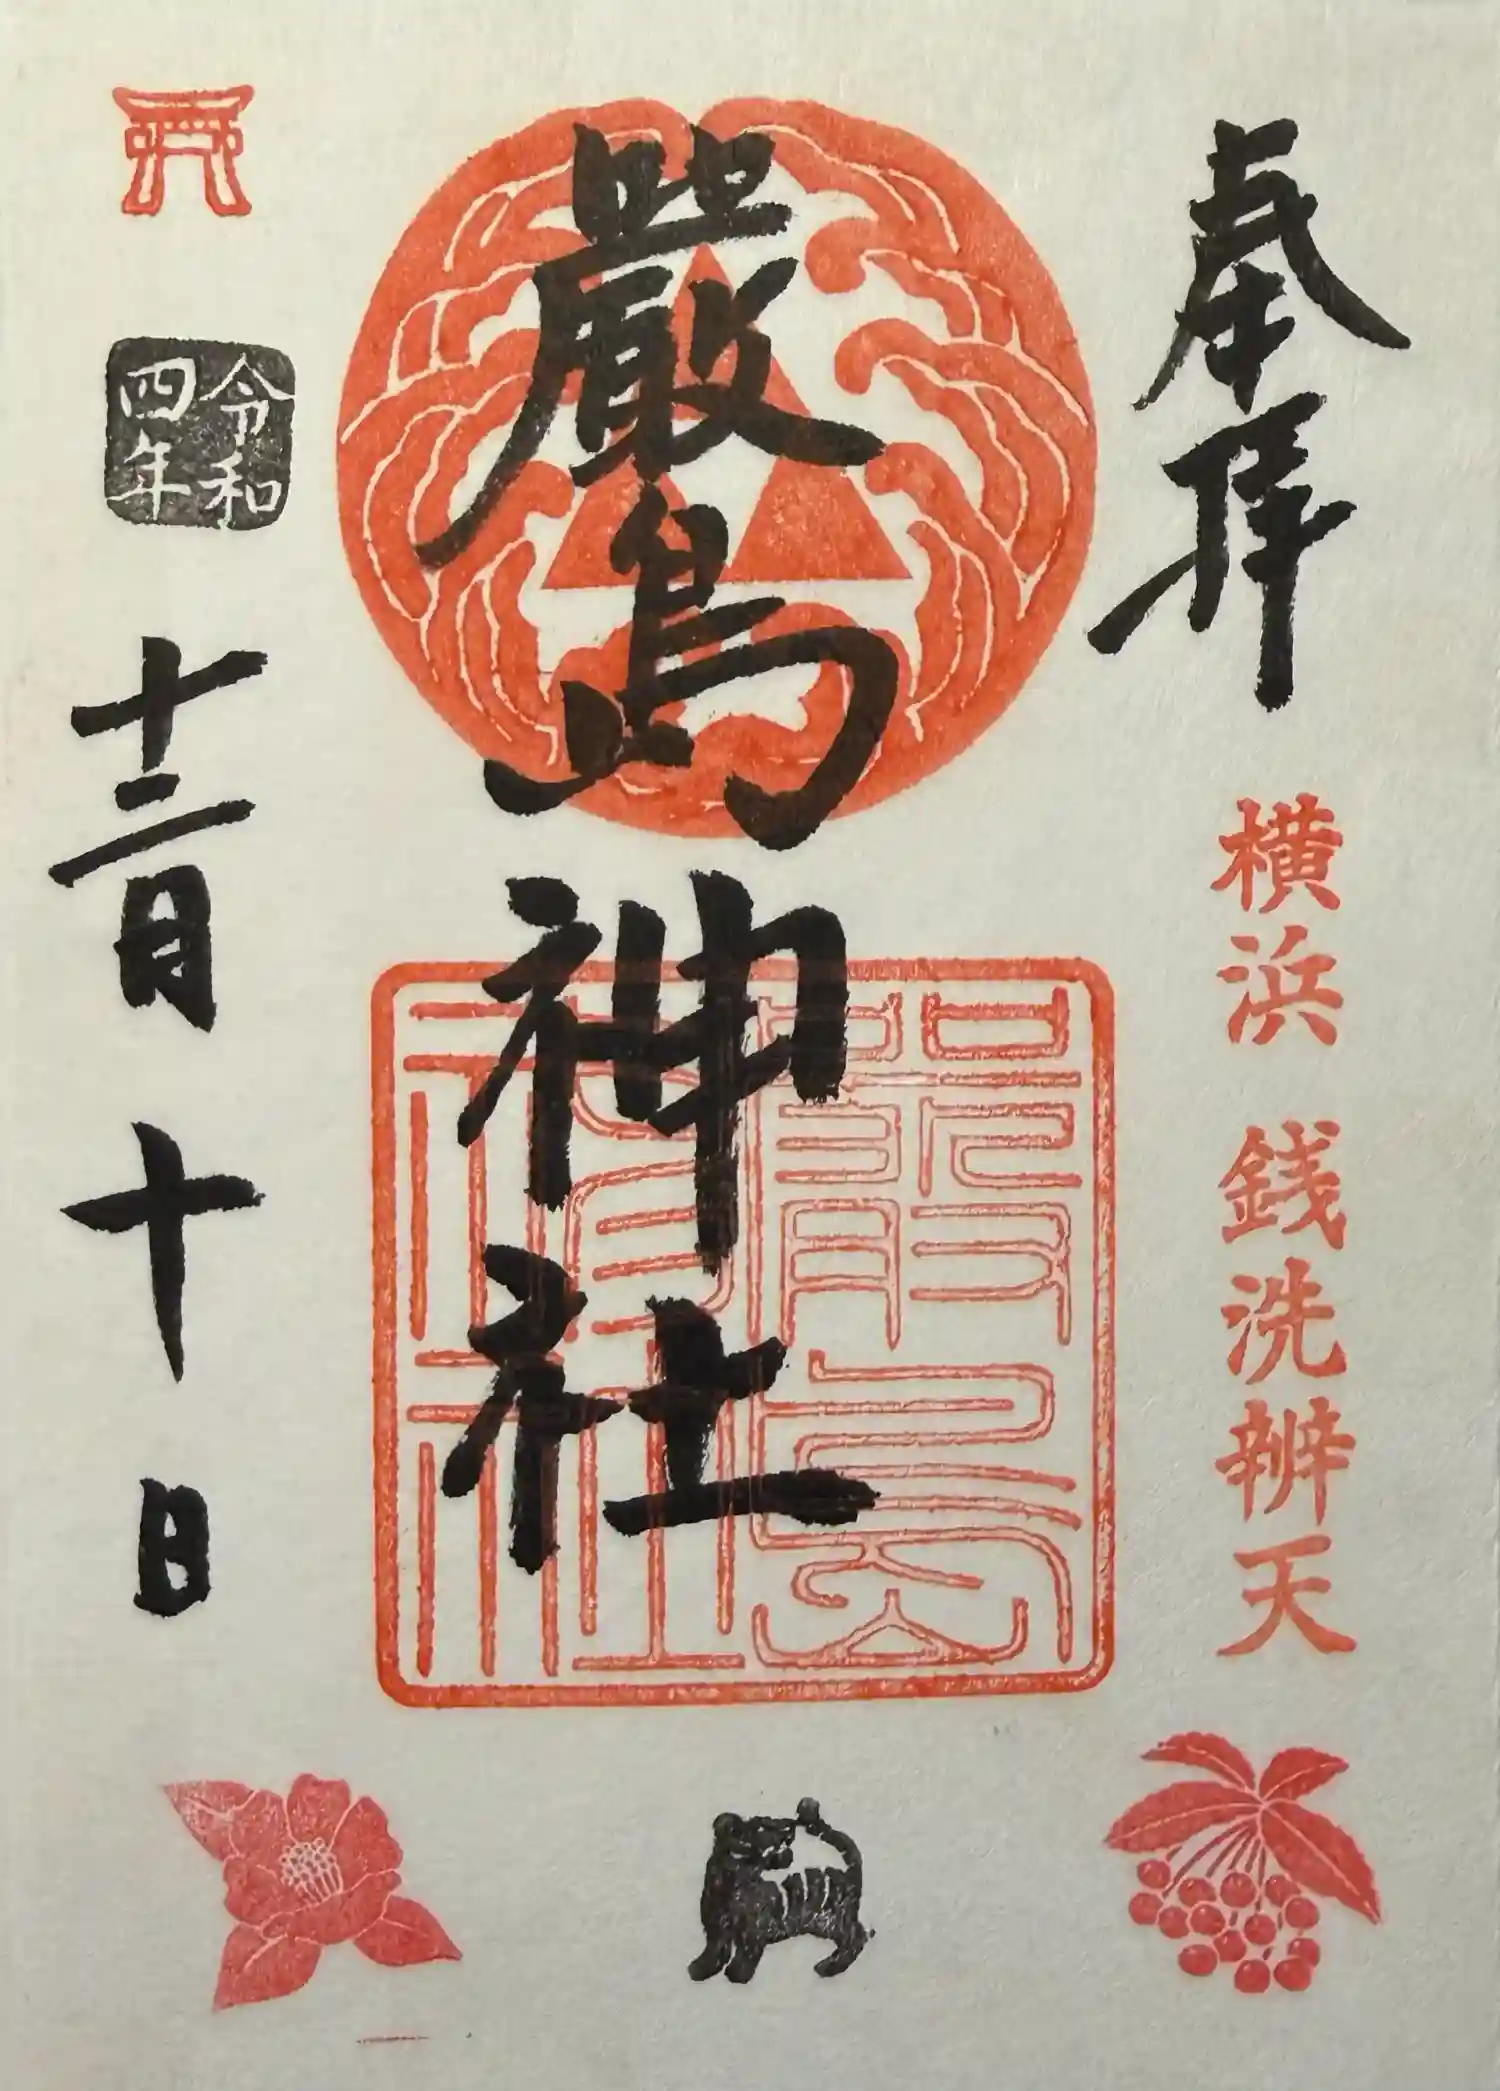 奉拝
横浜 銭洗辨天
嚴島神社
嚴島神社
令和
四年
十二月十日